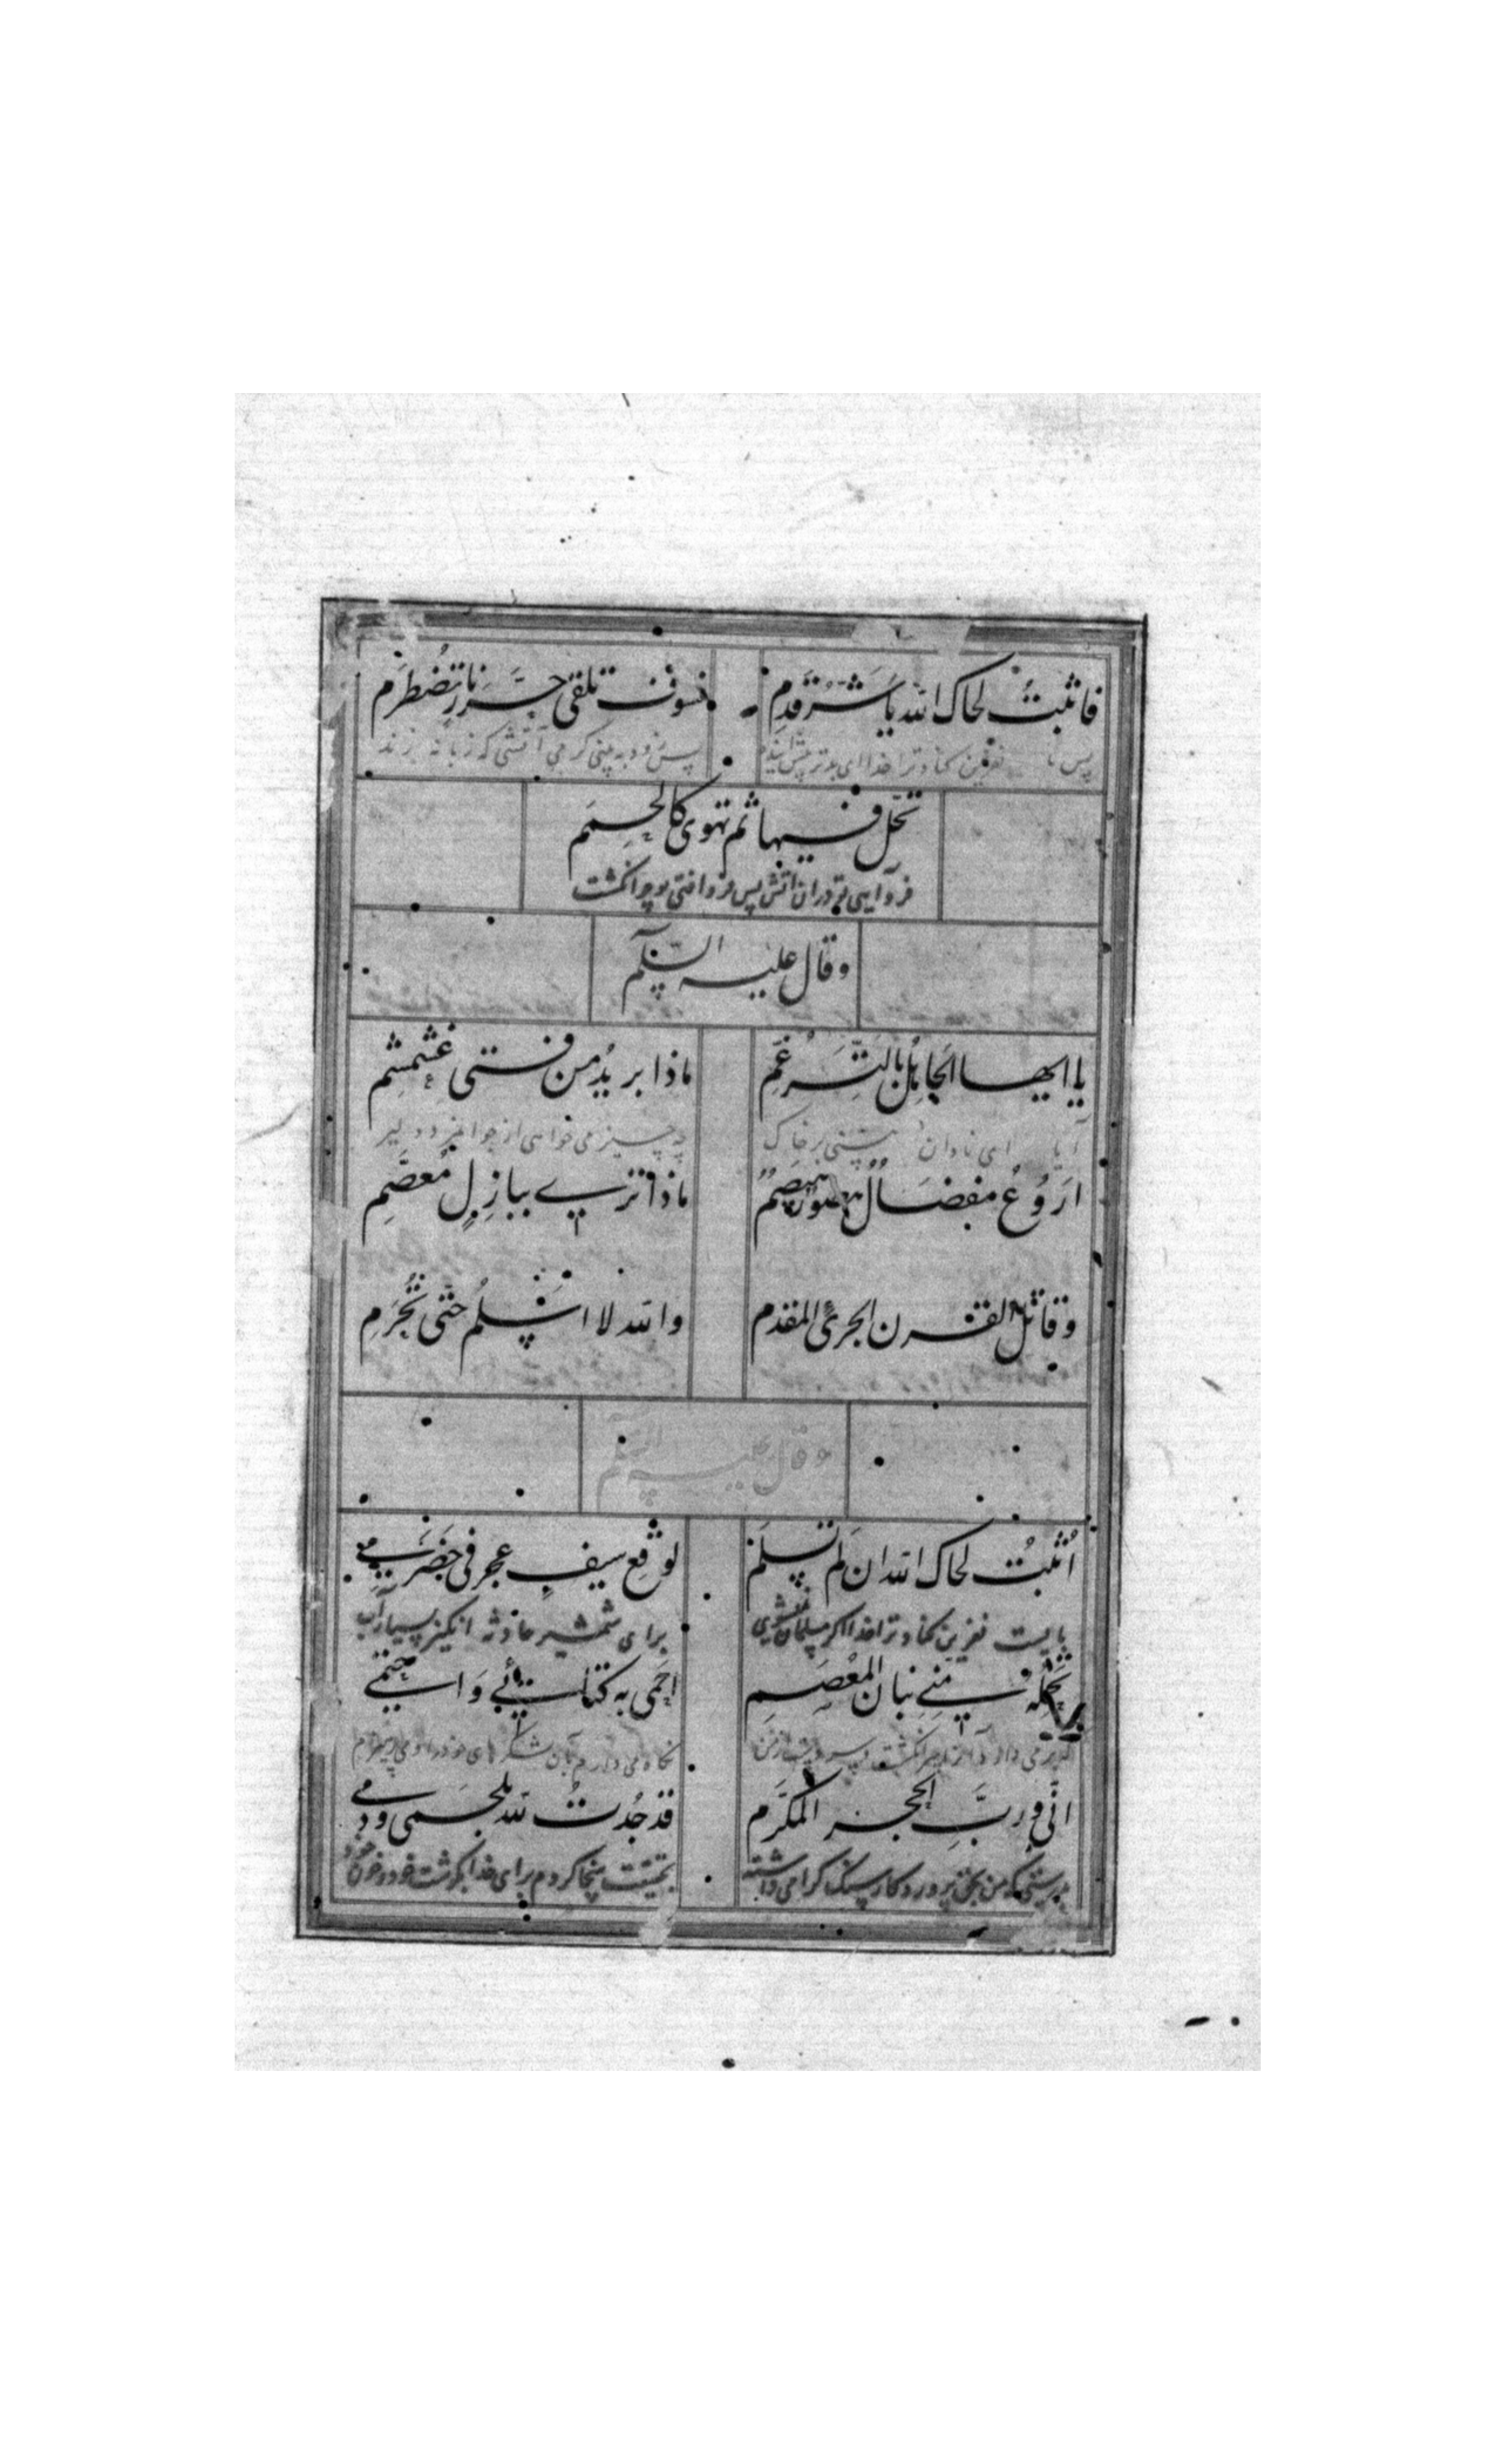 فاثبتْ لحاک الله یا شرّ قدم فسوف تلقی حرّ نار تضطرم
پس نفرین کناد ترا خدا ای بدتر پس زود به بینی گرمی آتشی که زبانه زند
تحلّ فیها ثم تهوی کالحمم
فرو آیی تو در آن آتش پس فرو افتی چو انگشت
وقال علیه السلم
یا ایها الجاهل بالترغّم ماذا یرید من فتی غشمشم
ای نادان چه چیز می خواهی از جوانمرد دلیر
اروع مفضال هصور هیصم ماذا تری ببازل معصّم
وقاتل القرن الجریّ المقدم والله لا اسلم حتی تُجرم
وقال علیه السلم
اُثبت لحاک الله ان لم تسلم لوقع سیف عجرفی خضرمی
بایست نفرین کناد ترا خدا اگر مسلمان نشوی برای شمشیر حادثه انگیز بسیار آب
تحمله منی بنان المعصم احمی به کتائبی واحتمی
بر می دارد نگاه می دارم بآن لشکرهای خود را
انّی وربّ الحجر المکرّم قد جُدتُ لله بلحمی ودمی
بدرستی که من بحق پروردگار سنگ گرامی داشته بتحقیق سخا کردم برای خدا بگوشت خود و خون خود